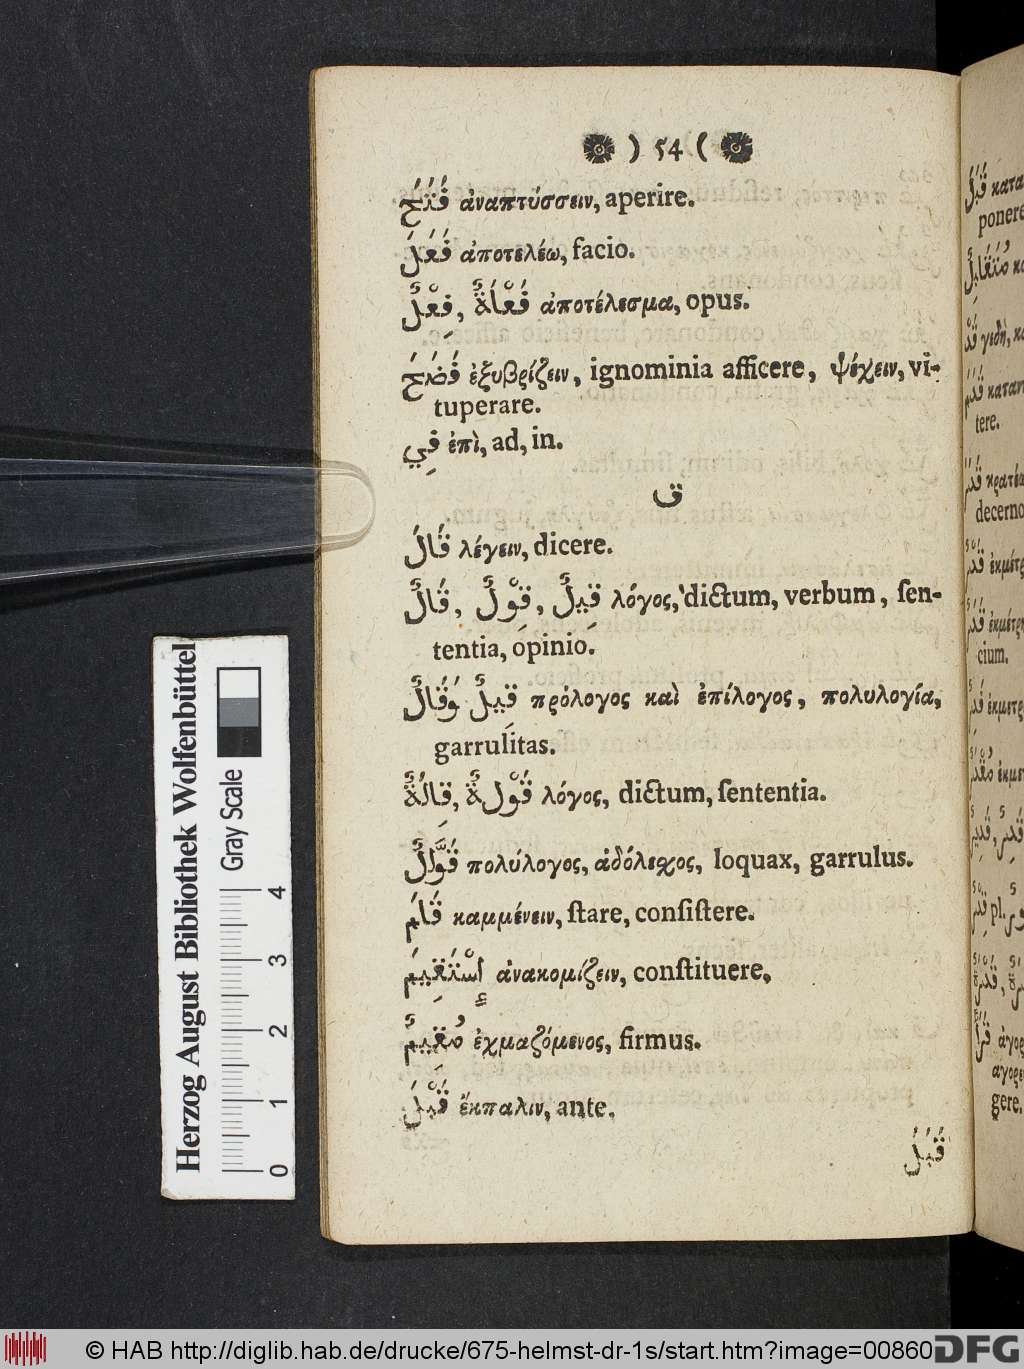 ) 54 (
فَتَحَ ἀναπτύσσειν, aperire.
فَعَلَ ἀποτελέω, facio.
فِعْلٌ, فَعْلَةٌ ἀποτέλεσμα, opus.
فَضَحَ ἐξυβρίζειν, ignominia afficere, ψέχειν, vi-
tuperare.
فِي ἐπὶ, ad, in.
ق
قَالَ λέγειν, dicere.
قَالٌ, قَوْلٌ, قِيلٌ λόγος, dictum, verbum, ſen-
tentia, opinio.
قِيلٌ وَقَالٌ πρόλογος καὶ ἐπίλογος, πολυλογία,
garrulitas.
قَالَةٌ, قَوْلَةٌ λόγος, dictum, ſententia.
قَوَّلٌ πολύλογος, ἀδόλεχος, loquax, garrulus.
قَامَ καμμένειν, ſtare, conſiſtere.
إِسْتَقِيمَ ἀνακομίζειν, conſtituere,
مُقِيمٌ ἐχμαζόμενος, firmus.
قَبْلَ ἔκπαλιν, ante.
قَبَلَ
κατα
ponere
κα
γεδὴ, κα
καταν
tere.
κρατέω
decerno
ἐκμέτρ
ἐκμέτρη
cium.
ἐκμετρ
ἐκμετ
pl.
ἀγορ
αγορε
gere.
Herzog August Bibliothek Wolfenbüttel
Gray Scale
0 1 2 3 4
© HAB http://diglib.hab.de/drucke/675-helmst-dr-1s/start.htm?image=00860
DFG